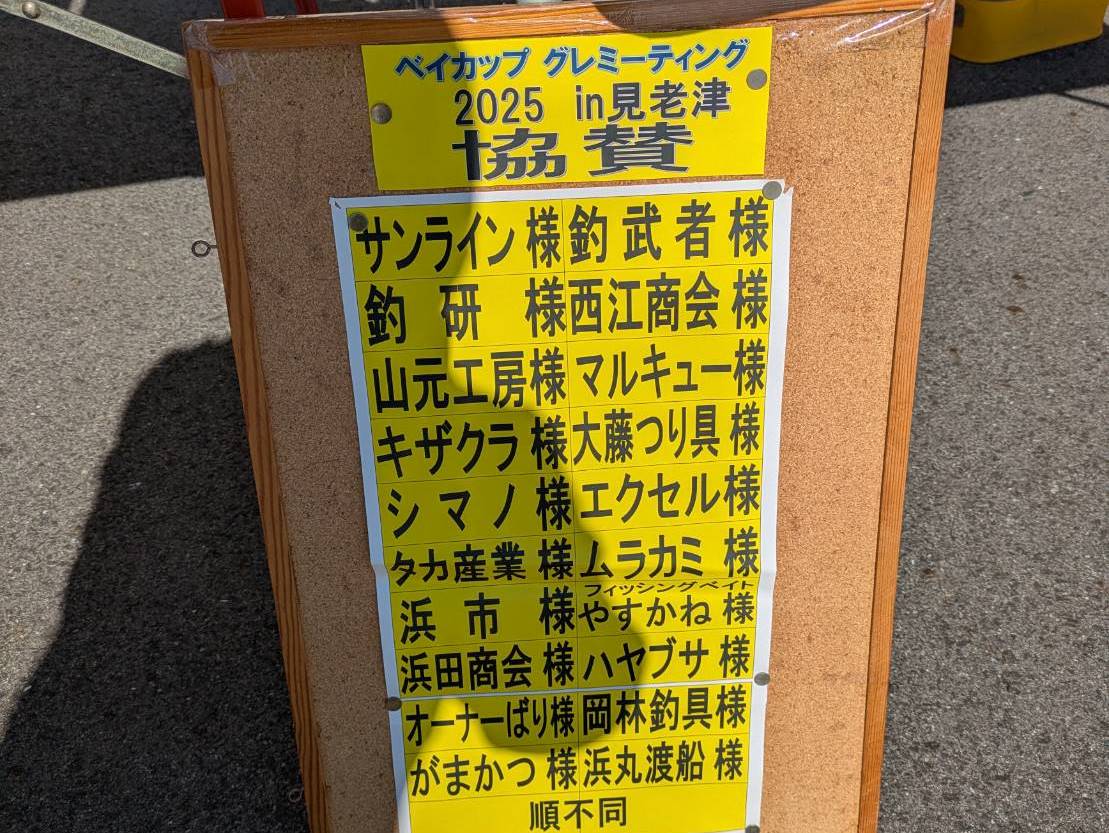 ベイカップ グレミーティング
2025 in見老津
協賛
サンライン様 釣武者様
釣研様 西江商会様
山元工房様 マルキュー様
キザクラ様 大藤つり具様
シマノ様 エクセル様
タカ産業様 ムラカミ様
フィッシングベイト
浜市様 やすかね様
浜田商会様 ハヤブサ様
オーナーばり様 岡林釣具様
がまかつ様 浜丸渡船様
順不同